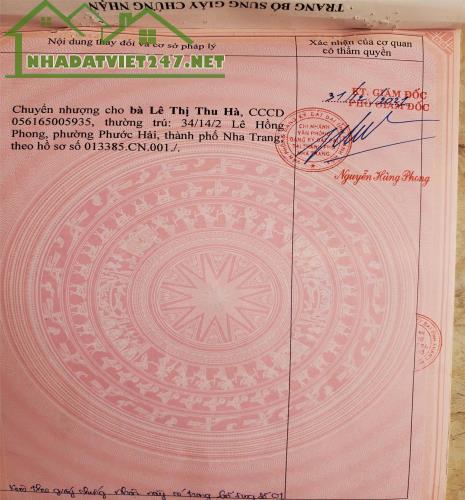 TRANG BỔ SUNG GIẤY CHỨNG NHẬN
NHADATVIET247.NET
Nội dung thay đổi và cơ sở pháp lý
Xác nhận của cơ quan
có thẩm quyền
Chuyển nhượng cho bà Lê Thị Thu Hà, CCCD
056165005935, thường trú: 34/14/2 Lê Hồng
Phong, phường Phước Hải, thành phố Nha Trang,
theo hồ sơ số 013385.CN.001./.
KT. GIÁM ĐỐC
PHÓ GIÁM ĐỐC
CHI NHÁNH
VĂN PHÒNG
NHA TRANG
Nguyễn Hùng Phong
Kèm theo giấy chứng nhận này có trang bổ sung số 01